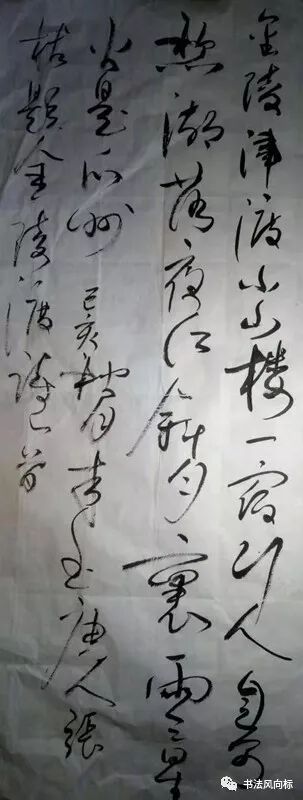 金陵津渡小山楼一宿行人自可
愁潮落夜江斜月裏兩三星
火是瓜州 己亥秋月唐人張
祜题金陵渡诗一首
书法风向标